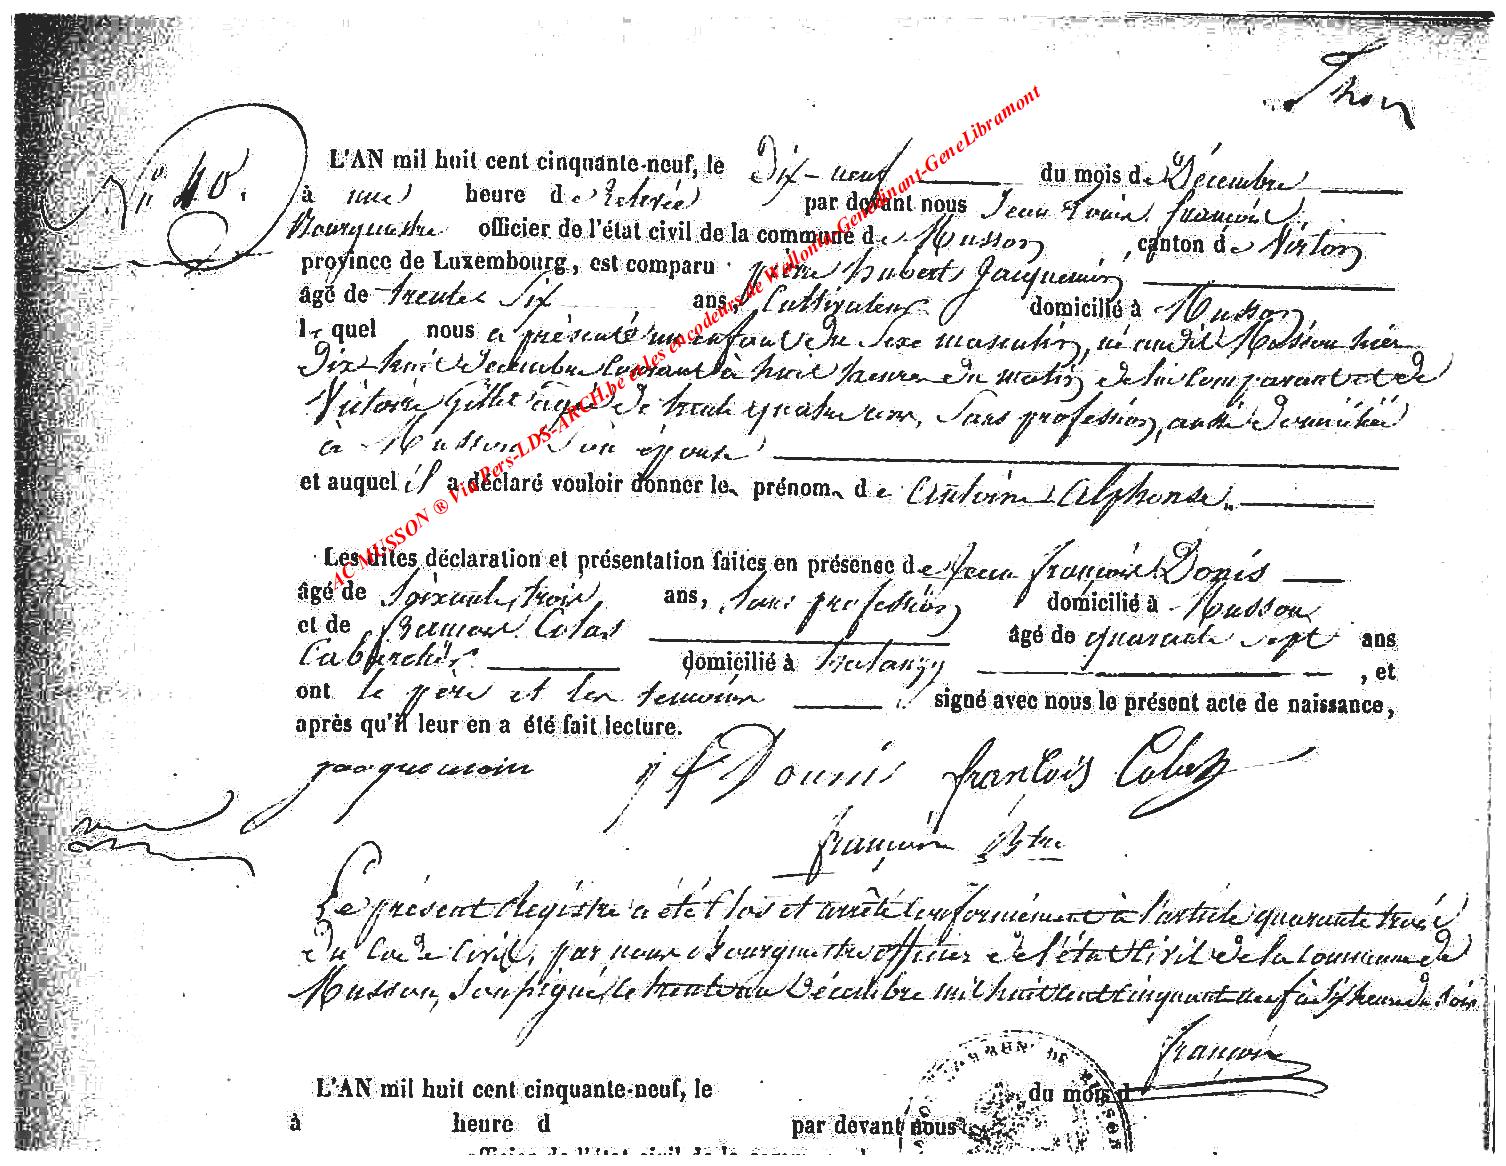 N° 40.
L'AN mil huit cent cinquante-neuf, le Dix-neuf du mois de Décembre
à une heure de Relevée par devant nous Jean Louis François
Bourgmestre officier de l'état civil de la commune de Musson, canton de Virton
province de Luxembourg, est comparu pierre hubert Jacquemin
âgé de trente Six ans, Cultivateur domicilié à Musson,
lequel nous a présenté un enfant du Sexe masculin, né audit Musson hier
Dix huit décembre courant à huit heures du matin de lui comparant et de
Victoire Gillet agée de trente quatre ans, Sans profession, aussi domiciliée
à Musson Son épouse
et auquel il a déclaré vouloir donner les prénoms de Antoine Alphonse
Les dites déclaration et présentation faites en présence de Jean françois Donis
âgé de Soixante trois ans, Sans profession domicilié à Musson
et de Colas âgé de quarante sept ans
Cabaretier domicilié à halanzy, et
ont le père et les témoins signé avec nous le présent acte de naissance,
après qu'il leur en a été fait lecture.
jacquemin j f Dounis françois Colas
françois Btre
Le présent Registre a été Clos et arrêté conformément à l'article quarante trois
du Code Civil, par nous Bourgmestre officier de l'état Civil de la Commune de
Musson, Soussigné, le trente un Décembre mil huit cent cinquante neuf à Six heures du Soir
françois
L'AN mil huit cent cinquante-neuf, le du mois d
à heure d par devant nous
officier de l'état civil de la commune d
AC MUSSON ® Via Pers-LDS-ARCH.be et les encodeurs de Wallonia-GeneDinant-GeneLibramont
DE MUSSON